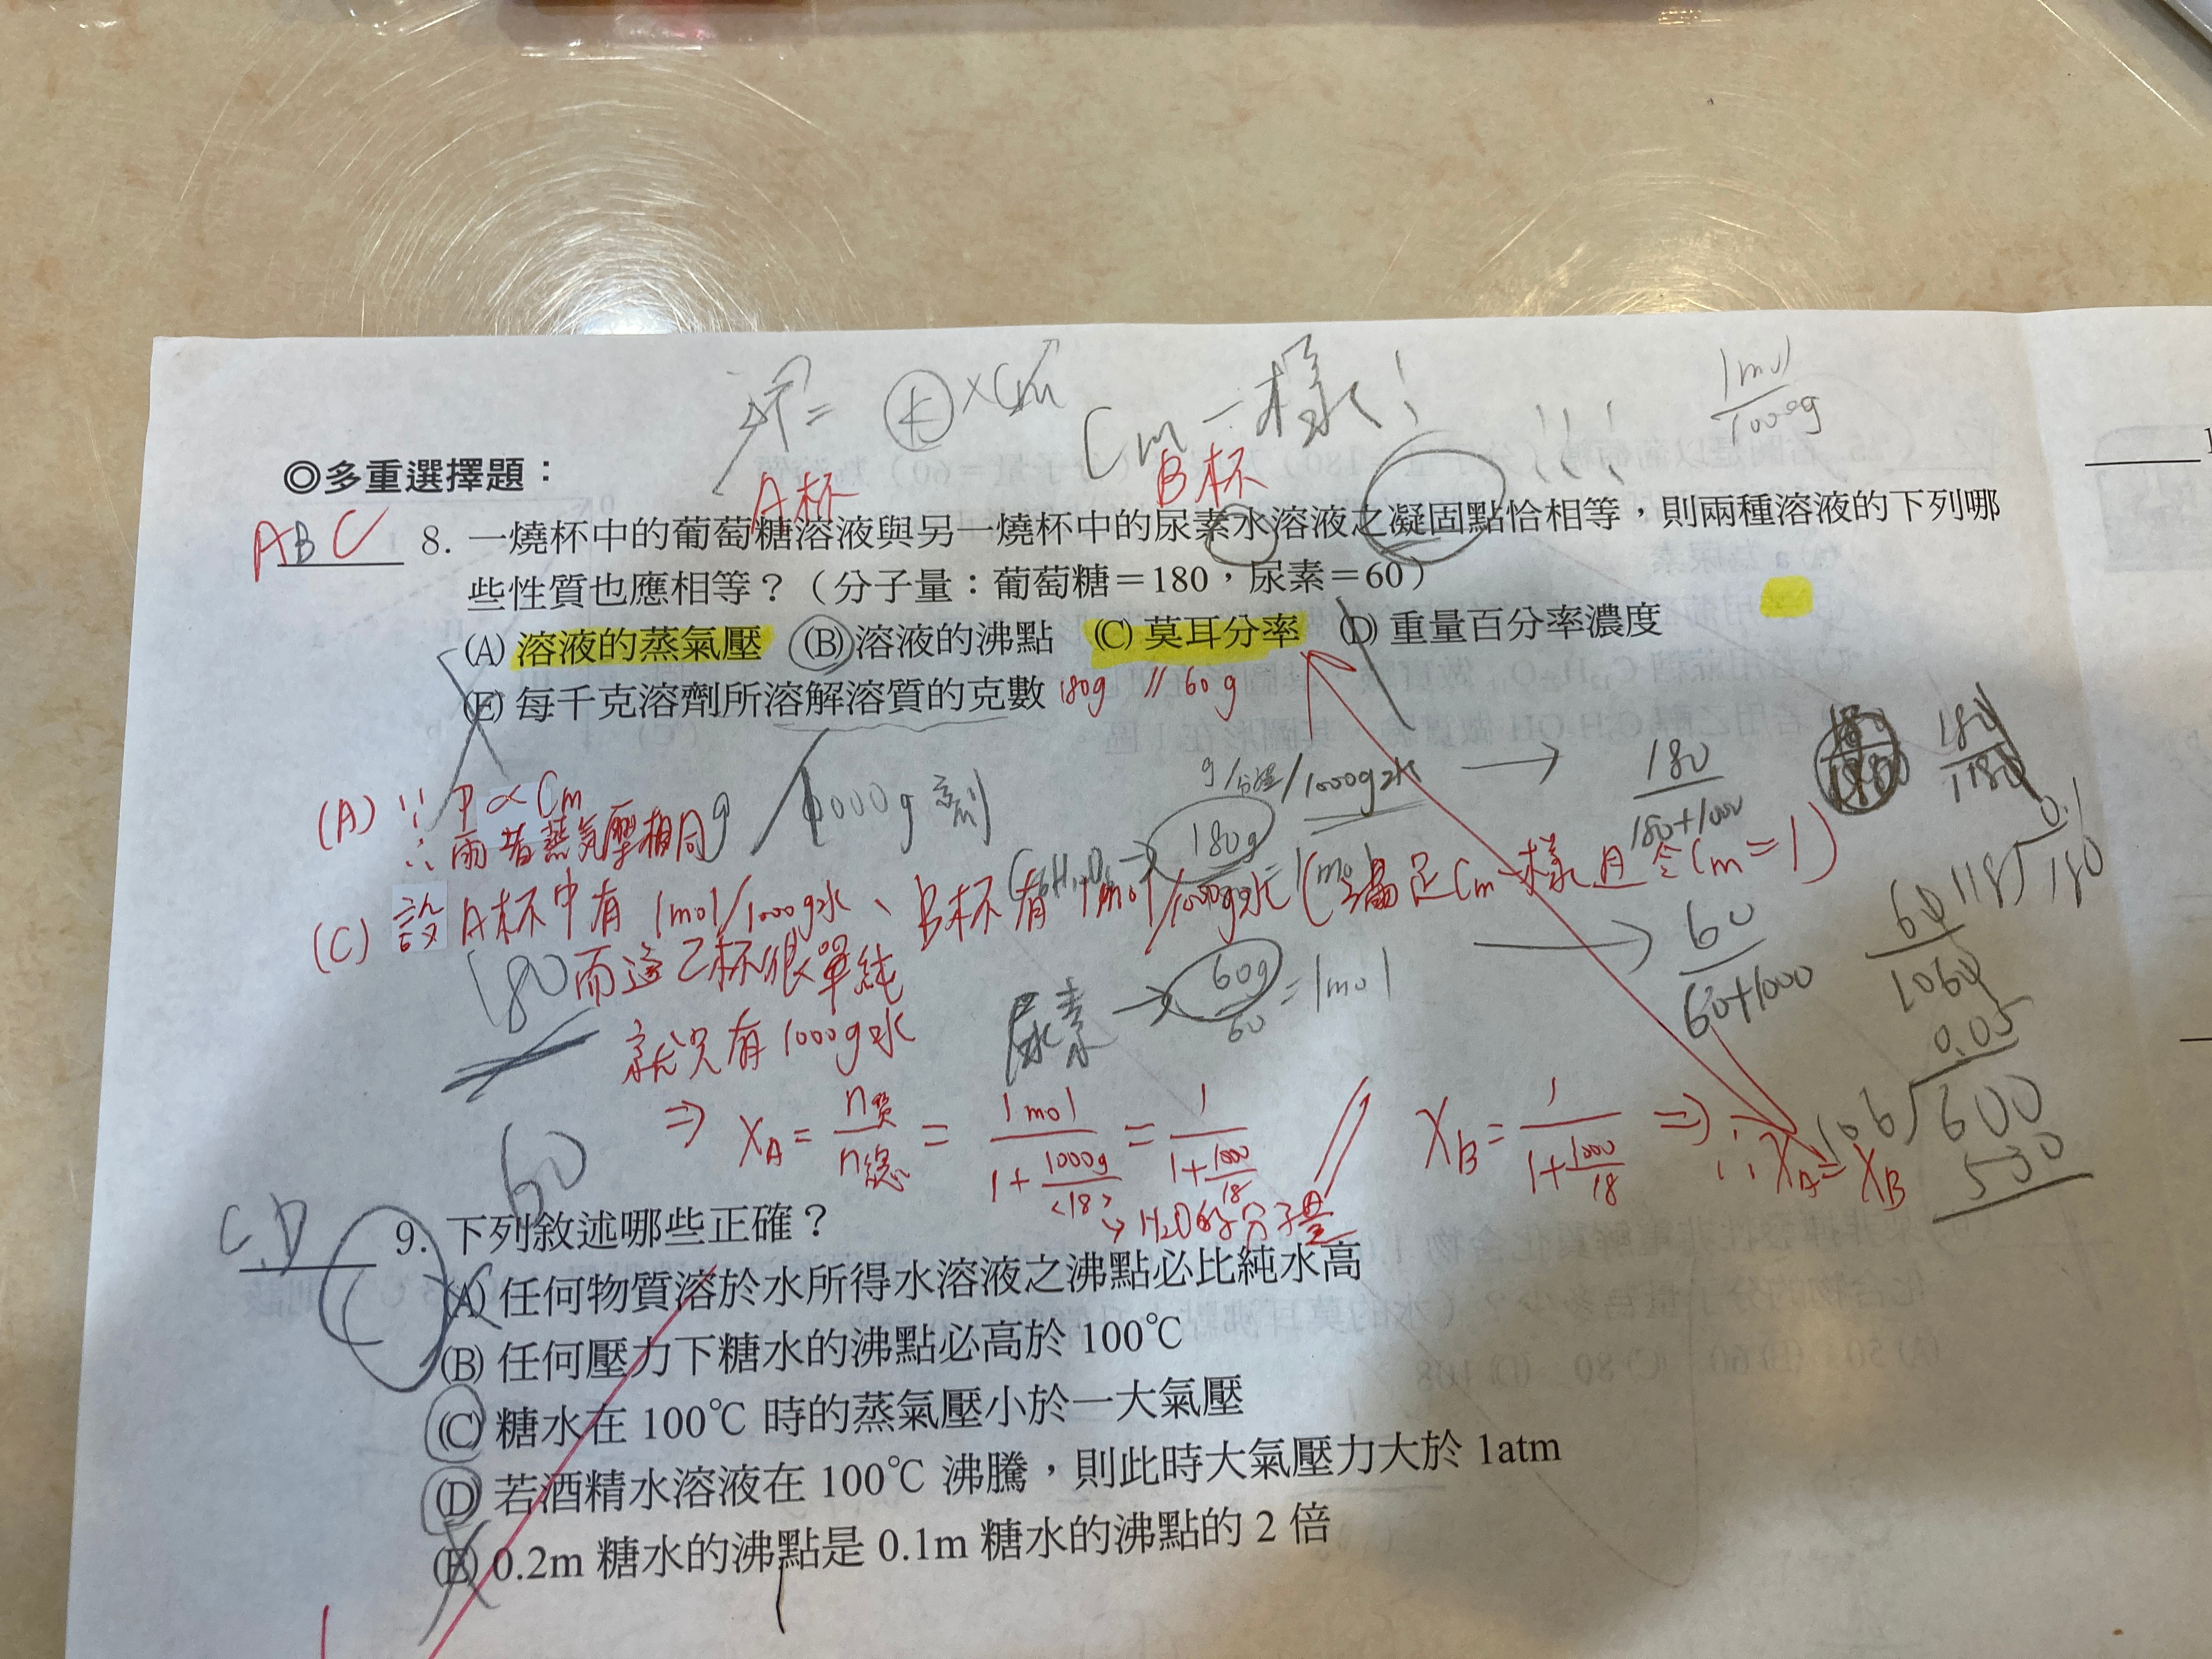 Cm一樣!
1mol
1000g
◎多重選擇題：
A杯
B杯
ABC
8. 一燒杯中的葡萄糖溶液與另一燒杯中的尿素水溶液之凝固點恰相等，則兩種溶液的下列哪
些性質也應相等？（分子量：葡萄糖＝180，尿素＝60）
(A) 溶液的蒸氣壓 (B) 溶液的沸點 (C) 莫耳分率 (D) 重量百分率濃度
(E) 每千克溶劑所溶解溶質的克數 180g // 60g
g/分子量/1000g水 → 180
180+1000
180
1180
(A) ∵ P ∝ Cm
∴ 兩者蒸氣壓相同
g / 1000g 劑
180g
(C) 設 A杯中有 1mol/1000g水、B杯有 1mol/1000g水 (滿足Cm一樣且令Cm=1)
180
而這乙杯很單純
就只有1000g水
尿素 → 60g
60
= 1mol
→ 60
60+1000
60
1060
0.1
118
180
0.05
106
600
530
⇒ XA = n質/n總 = 1mol/(1+1000g/<18>) = 1/(1+1000/18) // XB = 1/(1+1000/18) ⇒ ∴ XA = XB
→ H2O的分子量
60
C.D
9. 下列敘述哪些正確？
(A) 任何物質溶於水所得水溶液之沸點必比純水高
(B) 任何壓力下糖水的沸點必高於 100℃
(C) 糖水在 100℃ 時的蒸氣壓小於一大氣壓
(D) 若酒精水溶液在 100℃ 沸騰，則此時大氣壓力大於 1atm
(E) 0.2m 糖水的沸點是 0.1m 糖水的沸點的 2 倍